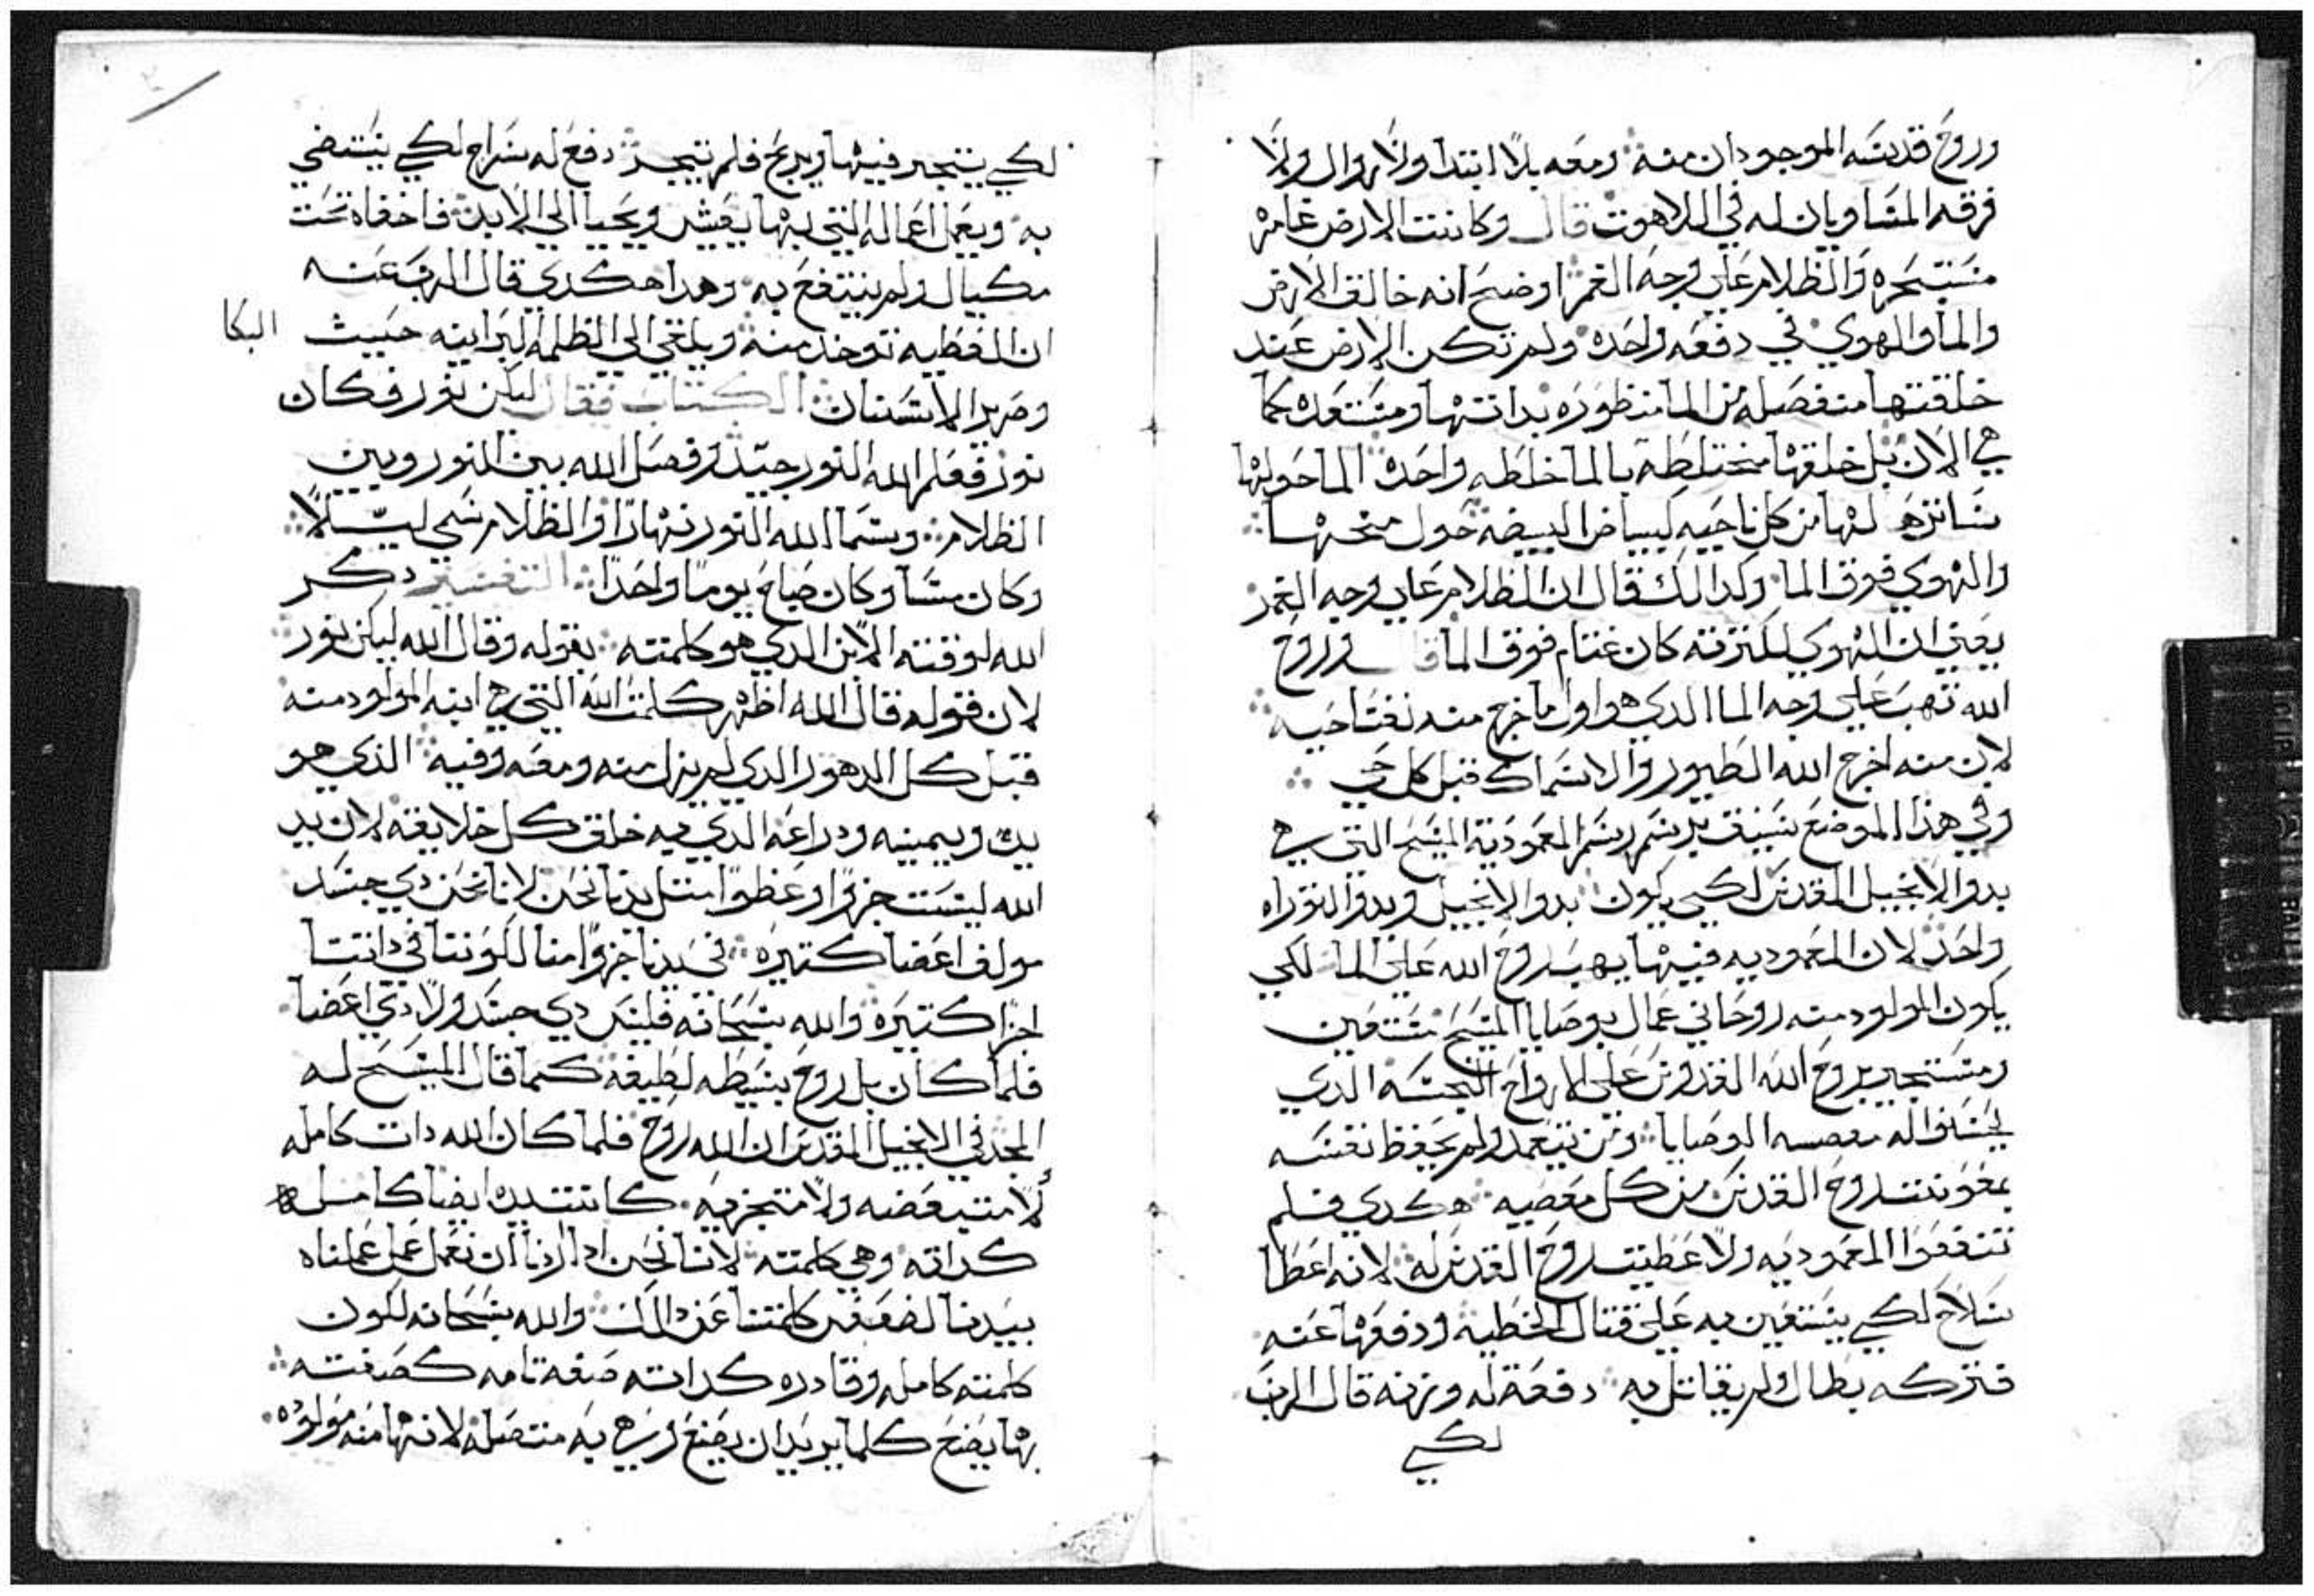 وروح قدسه الموجودان منه ومعه بلا ابتدا ولا زوال ولا
فرقه المساويان له في اللاهوت قال وكانت الارض غامره
مستبحره والظلام علي وجه الغمر اوضح انه خالق الارض
والما والهوي في دفعه واحده ولم تكن الارض عند
خلقتها منفصله من الما منظوره بداتها ومستعده كما
هي الان بل خلقها مختلطه بالما خلطه واحده الما حولها
ساترها لها من كل ناحيه كبياض البيضه حول محها
والهوي فوق الما وكدالك قال ان الظلام علي وجه الغمر
يعني ان الهوي لكترته كان غتام فوق الما قال وروح
الله تهب علي وجه الما الدي هو اول ما خرج منه نفسا حيه
لان منه اخرج الله الطيور والاسماك قبل كل حي
وفي هذا الموضع سبق يرسم رسم المعموديه المسيح التي هي
بدو الانجيل المقدس لكي يكون بدو الانجيل وبدو التوراه
واحد لان المعموديه فيها يهب روح الله علي الما لكي
يكون المولود منه روحاني عمال بوصايا المسيح مستعين
ومستجير بروح الله القدوس علي الارواح النجسه الدي
يحسنوا له معصيه الوصايا ومن يتعمد ولم يحفظ نفسه
بمعونت روح القدس من كل معصيه هكدي فلم
تنفعوا المعموديه ولا عطيت روح القدس له لانه اعطا
سلاح لكي يستعين به علي قتال الخطيه ودفعها عنه
فتركه بطال ولم يقاتل به دفعه له وزنه قال الرب
لكي
لكي يتجر فيها ويربح فلم يتجر دفع له سراج لكي يستضي
به ويعمل اعماله التي بها يعيش ويحيا الي الابد فاخفاه تحت
مكيال ولم ينتفع به وهدا هكدي قال الرب عنه
ان العطيه توخد منه ويلقي الي الظلمه البرانيه حيث البكا
وصرير الاسنان الكتاب فقال ليكن نور فكان
نور فعلم الله النور جيد وفصل الله بين النور وبين
الظلام وسما الله النور نهارا والظلام سمي ليلا
وكان مسا وكان صباح يوما واحدا التفسير دكر
الله لوقته الابن الدي هو كلمته بقوله وقال الله ليكن نور
لان قوله قال الله اظهر كلمت الله التي هي ابنه المولود منه
قبل كل الدهور الدي لم يزل منه ومعه وفيه الذي هو
يده ويمينه ودراعه الدي به خلق كل خلايقه لان يد
الله ليست جزوا وعظوا متل يدنا نحن لانا نحن دي جسد
مولف اعضا كتيره في يدنا جزوا منا لكوننا في داتنا
اجزا كتيره والله سبحانه فليس دي جسد ولا دي اعضا
فلما كان بل روح بسيطه لطيفه كما قال المسيح له
المجد في الانجيل المقدس ان الله روح فلما كان الله دات كامله
لا متبعضه ولا متجزيه كانت يده ايضا كامله
كداته وهي كلمته لاننا نحن ادا اردنا ان نعمل عمل عملناه
بيدنا لضعف كلمتنا عن دالك والله سبحانه لكون
كلمته كامله وقادره كداته صفه تامه كصفته
بها يصنع كلما يريد ان يصنع وهي به متصله لانها منه مولوده